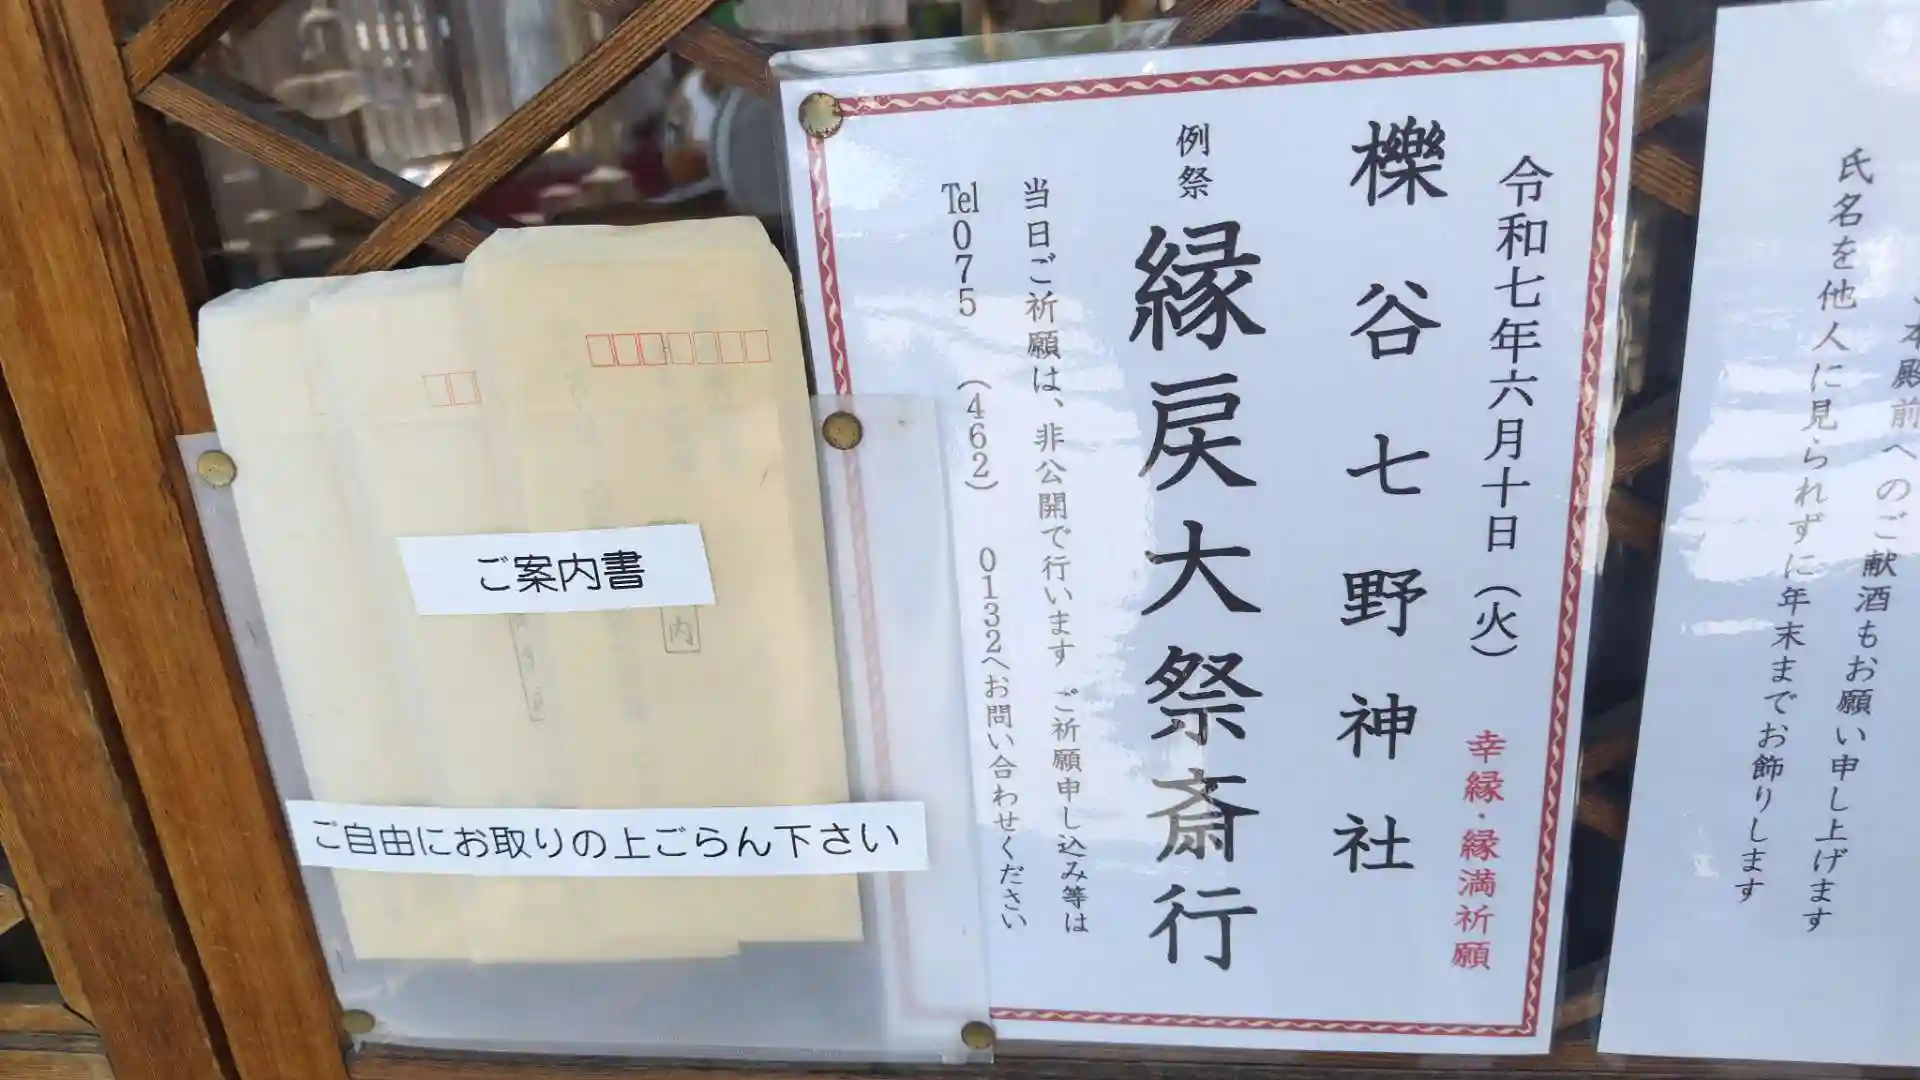 本殿前へのご献酒もお願い申し上げます
氏名を他人に見られずに年末までお飾りします
令和七年六月十日（火） 幸縁・縁満祈願
櫟谷七野神社
例祭 縁戻大祭斎行
当日ご祈願は、非公開で行います ご祈願申し込み等は
Tel 075（462）0132へお問い合わせください
ご案内書
ご自由にお取りの上ごらん下さい